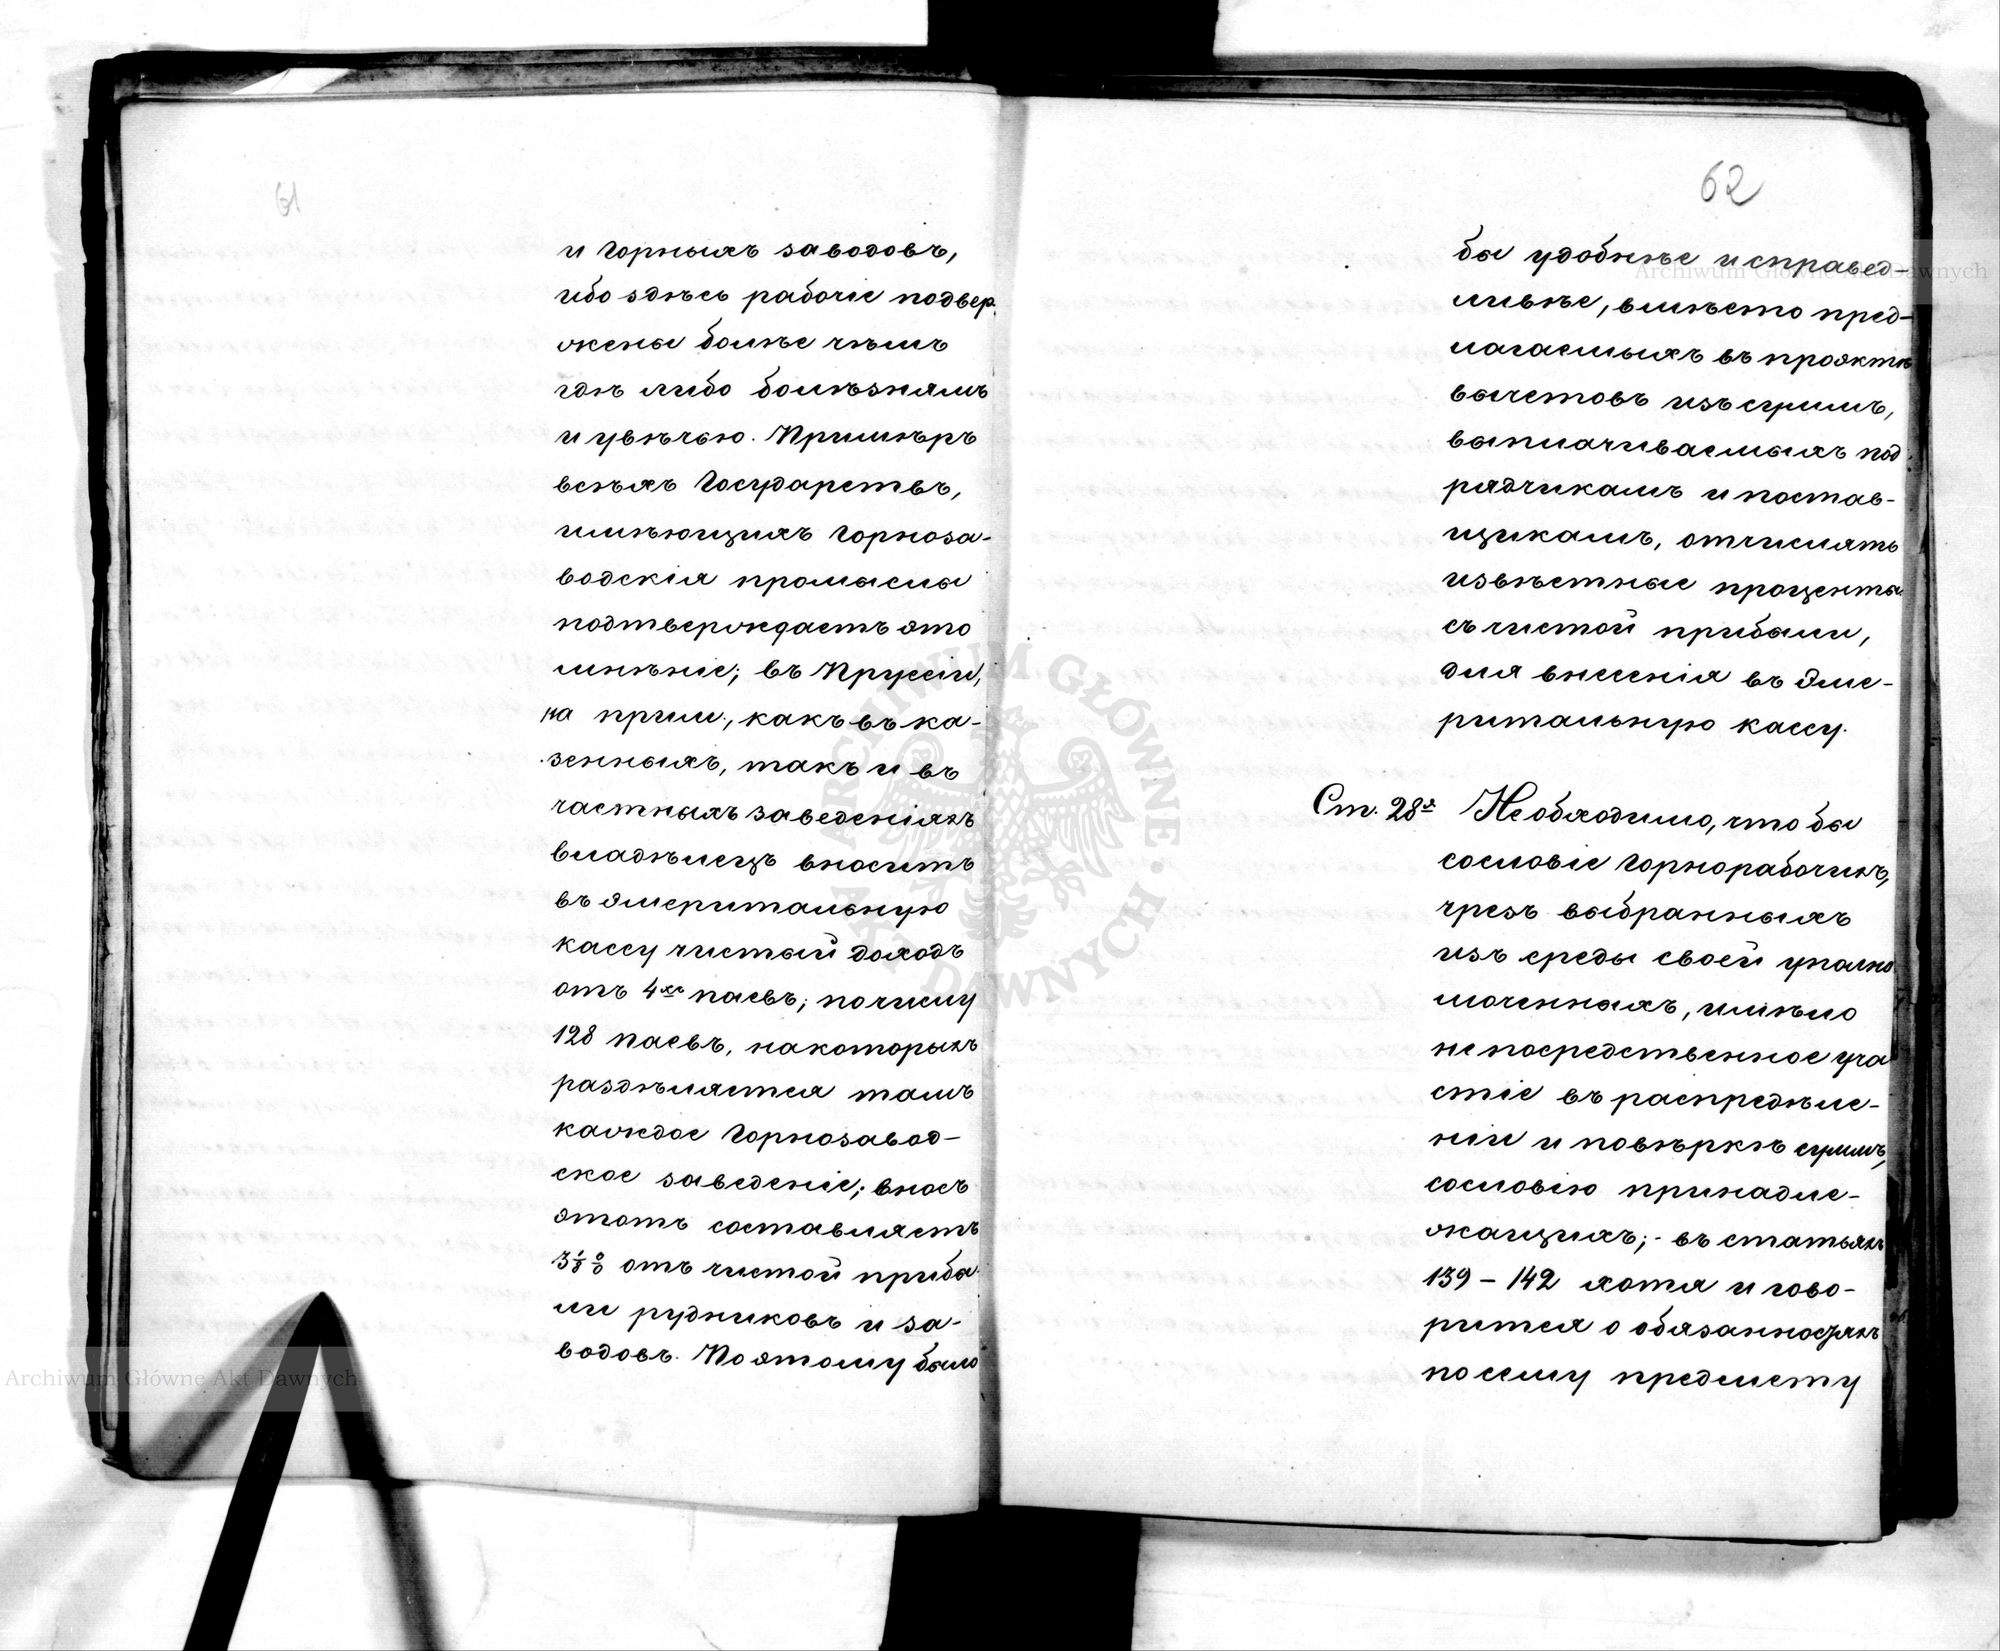 61
и Горныхъ заводовъ,
ибо здѣсь рабочіе подвер
жены болѣе чѣмъ
гдѣ либо болѣзнямъ
и увѣчью. Примѣръ
всѣхъ Государствъ,
имѣющихъ Горноза-
водскія промыслы
подтверждаетъ это
мнѣніе; въ Пруссіи,
на прим., какъ въ ка-
зенныхъ, такъ и въ
частныхъ заведеніяхъ
владѣлецъ вноситъ
въ эмеритальную
кассу чистый доходъ
отъ 4хъ паевъ; по числу
128 паевъ, на которыхъ
раздѣляется тамъ
каждое Горнозавод-
ское заведеніе; вносъ
этотъ составляетъ
3 1/8 % отъ чистой прибы
ли рудниковъ и за-
водовъ. Поэтому было
62
бы удобнѣе и справед-
ливѣе, вмѣсто пред-
лагаемыхъ въ проэктѣ
вычетовъ изъ суммъ,
выплачиваемыхъ под
рядчикамъ и постав-
щикамъ, отчислять
извѣстные проценты
съ чистой прибыли,
для внесенія въ Эме-
ритальную кассу.
Ст. 28я Необходимо, что бы
сословіе Горнорабочихъ,
чрезъ выбранныхъ
изъ среды своей уполно
моченныхъ, имѣло
непосредственное уча
стіе въ распредѣле-
ніи и повѣркѣ суммъ,
сословію принадле-
жащихъ; - въ статьяхъ
139 – 142 хотя и гово-
рится о обязанностяхъ
по сему предмету
Archiwum Główne Akt Dawnych
Archiwum Główne Akt Dawnych
ARCHIWUM GŁÓWNE AKT DAWNYCH